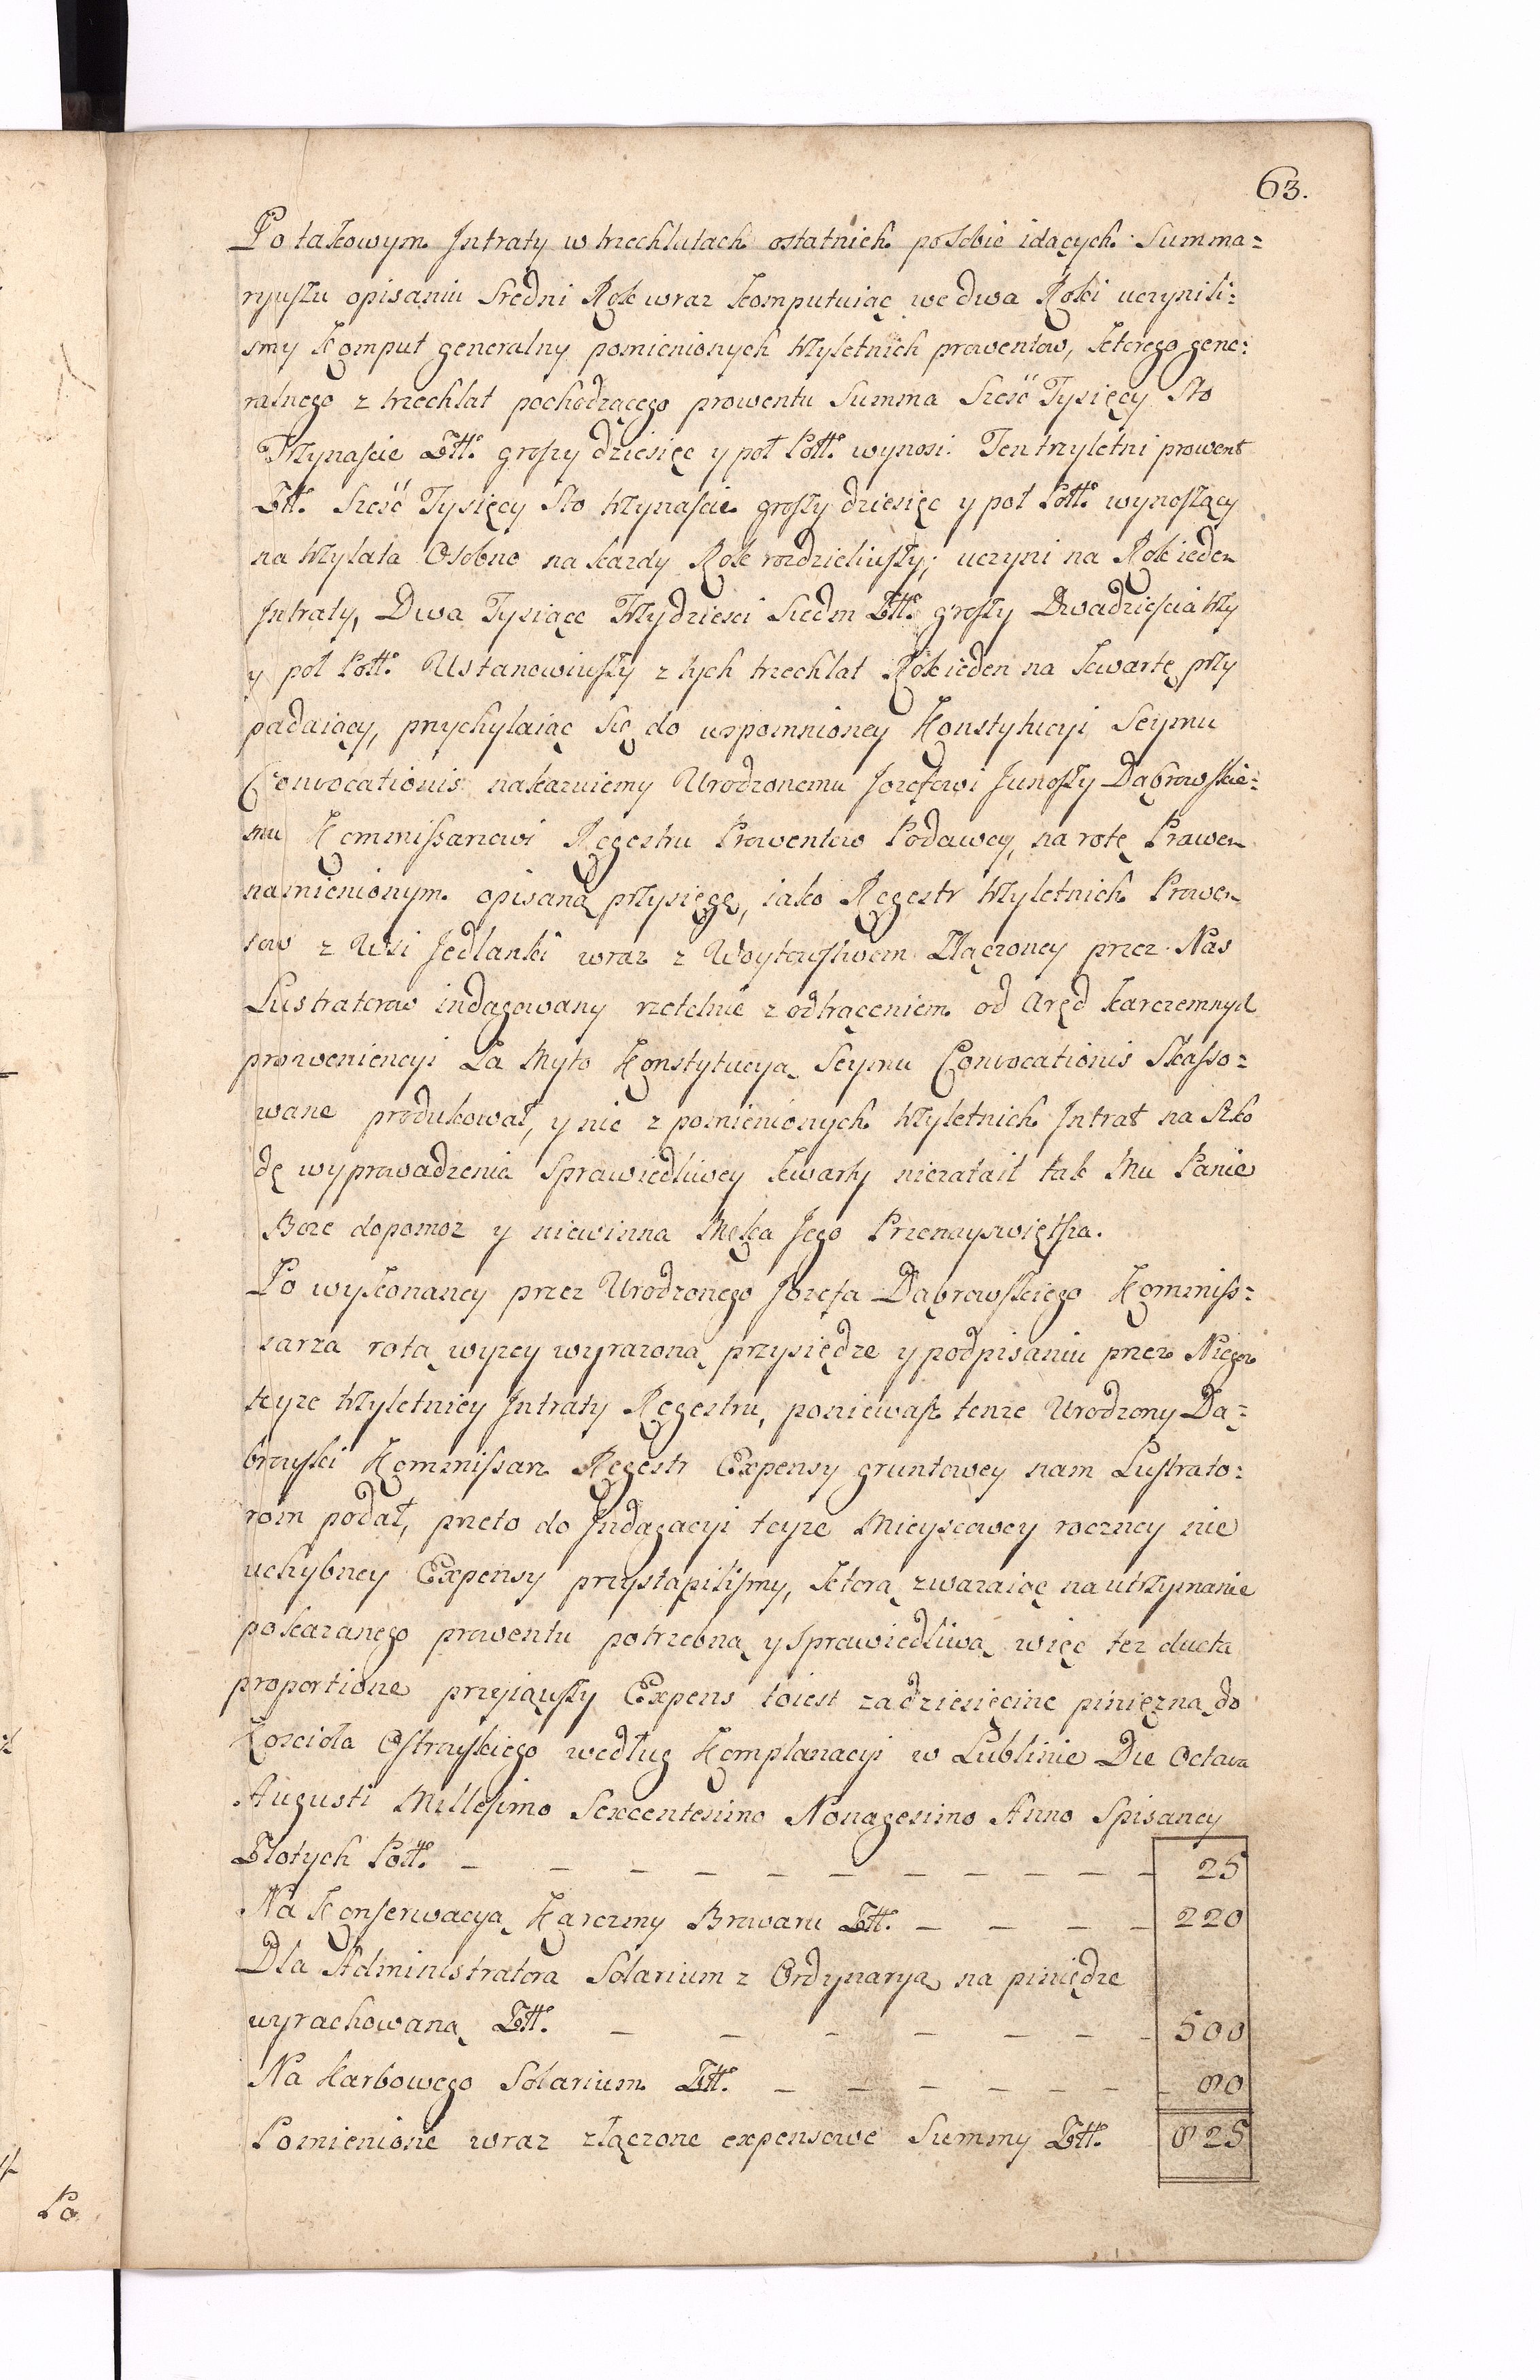 63.
Po takowym Jntraty w trzechlatach ostatnich posobie idących Summa=
ryuszu opisaniu Sredni Rok wraz komputuiąc we dwa Roki uczynili=
smy Komput generalny pomienionych trzyletnich prowentow, ktorego gene=
ralnego z trzechlat pochodzącego prowentu Summa Szesć Tysięcy Sto
Trzynascie Złł. groszy dziesięc y poł Poll. wynosi. Ten trzyletni prowent
Złł. Szesć Tysięcy Sto trzynascie groszy dziesięc y poł Poll. wynoszący
na trzylata Osobno na kazdy Rok rozdzieliwszy; uczyni na Rok ieden
Jntraty, Dwa Tysiące Trzydziesci Siedm Złł. groszy Dwadziescia trzy
y poł Poll. Ustanowiwszy z tych trzechlat Rok ieden na kwartę przy
padaiący, przychylaiąc się do wspomnioney Konstytucyi Seymu
Convocationis nakazuiemy Urodzonemu Jozefowi Junoszy Dąbrowskie=
mu Kommissarzowi Regestru Prowentow Podawcy, na rotę Prawem
namienionym opisaną przysięgę, iako Regestr trzyletnich Prowen
tow z Wsi Jedlanki wraz z Woytowstwem Złączoney przez Nas
Lustratorow indagowany rzetelnie z odtrąceniem od Aręd karczemnych
prowenciencyi Za Myto Konstytucyą Seymu Convocationis Skasso=
wane produkował, y nic z pomienionych trzyletnich Jntrat na szko
dę wyprowadzenia Sprawiedliwey kwarty niezataił tak Mu Panie
Boze dopomoz y niewinna Męka Jego Przenayswiętsza.
Po wykonaney przez Urodzonego Jozefa Dąbrowskiego Kommiss=
sarza rotą wyzey wyrazoną przysiędze y podpisaniu przez Niego
teyze trzyletniey Jntraty Regestru, poniewasz tenze Urodzony Dą=
browski Kommissarz Regestr Expensy gruntowey nam Lustrato=
rom podał, przeto do Jndagacyi teyze Mieyscowey roczney nie
uchybney Expensy przystąpilismy, ktorą zwazaiąc na utrzymanie
pokazanego prowentu potrzebną y sprawiedliwą więc tez ducta
proportione przyiąwszy Expens toiest za dziesięcine pinięzną do
Koscioła Ostrowskiego według Komplanacyi w Lublinie Die Octava
Augusti Millesimo Sexcentesimo Nonagesimo Anno Spisaney
Złotych Poll. – – – – – – – – – – – 25
Na Konserwacyą Karczmy Browaru Złł. – – – – 220
Dla Administratora Solarium z Ordynaryą na piniędze
wyrachowaną Złł. – – – – – – – 500
Na Karbowego Solarium Złł. – – – – – – – 80
Pomienione wraz złączone expensowe Summy Złł. 825
Po